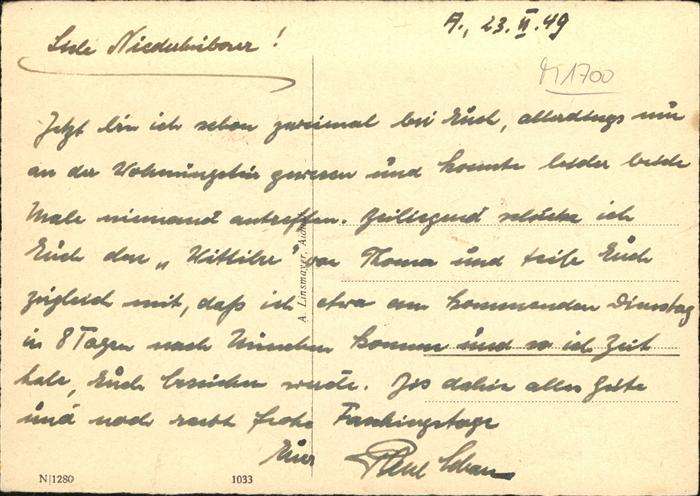 A., 23.II.49
Liebe !
M 1700
Jetzt bin ich schon zweimal bei Euch, allerdings nur
an der Wohnungstür gewesen und konnte leider beide
Male niemand antreffen. Beiliegend schicke ich
Euch den „ Wittiber " von Thoma und teile Euch
zugleich mit, daß ich etwa am kommenden Dienstag
in 8 Tagen nach München komme und so ich Zeit
habe, Euch besuchen werde. Bis dahin alles Gute
und noch recht frohe Faschingstage
Euer
A. Linsmayer,
N|1280
1033